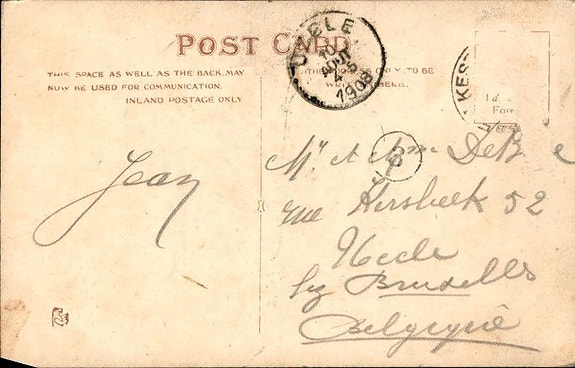 POST CARD
THIS SPACE AS WELL AS THE BACK, MAY
NOW BE USED FOR COMMUNICATION.
INLAND POSTAGE ONLY
ONLY TO BE
UCCLE
10
AOUT
4-5
1908
KES
Jean
Mr et Mme De
B
rue Kersbeek 52
Uccle
by Bruxelles
Belgique